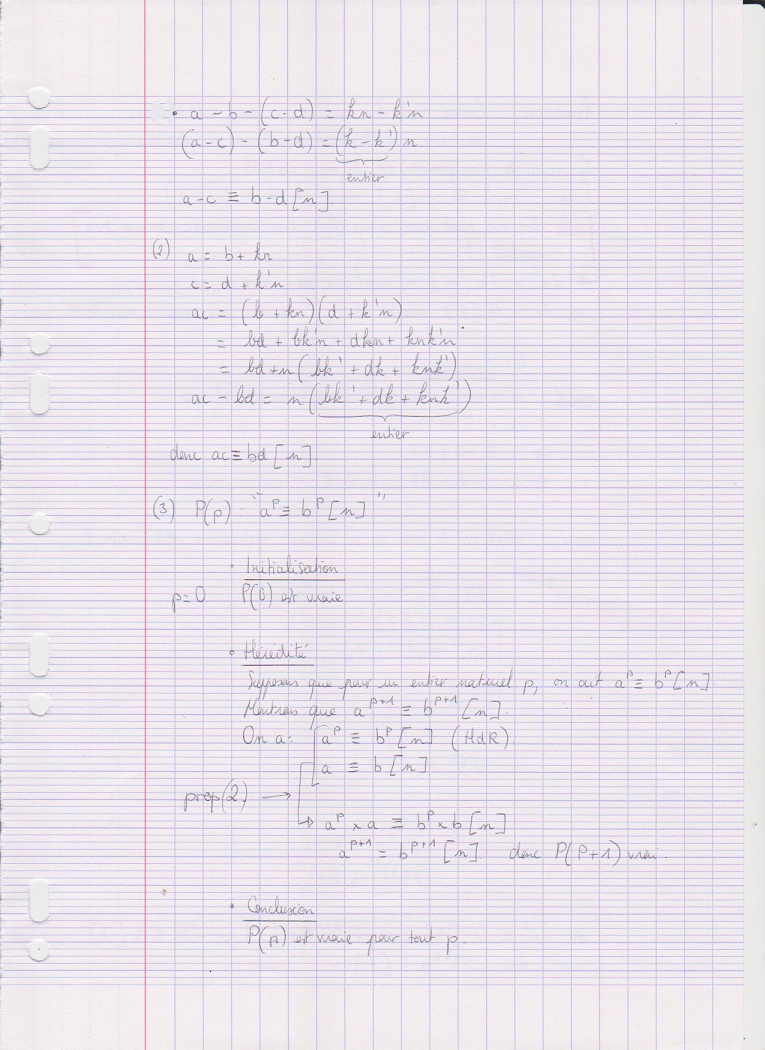 • a - b - (c-d) = kn - k'n
(a-c) - (b-d) = (k - k')n
entier
a-c ≡ b-d [n].
(2) a = b + kn
c = d + k'n
ac = (b + kn)(d + k'n)
= bd + bk'n + dkn + knk'n
= bd + n(bk' + dk + knk')
ac - bd = n(bk' + dk + knk')
entier
donc ac ≡ bd [n]
(3) P(p) : "a^p ≡ b^p [n]"
• Initialisation
p=0 P(0) est vraie
• Hérédité
Supposons que pour un entier naturel p, on ait a^p ≡ b^p [n]
Montrons que a^{p+1} ≡ b^{p+1} [n].
On a : a^p ≡ b^p [n] (HdR)
a ≡ b [n]
prop(2) →
↳ a^p × a ≡ b^p × b [n]
a^{p+1} = b^{p+1} [n] donc P(P+1) vrai.
• Conclusion
P(p) est vraie pour tout p.